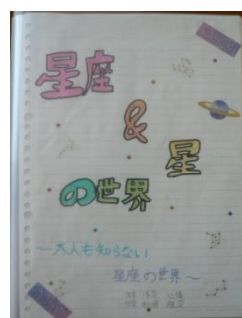 星座
&
星
の世界
〜大人も知らない
星座の世界〜